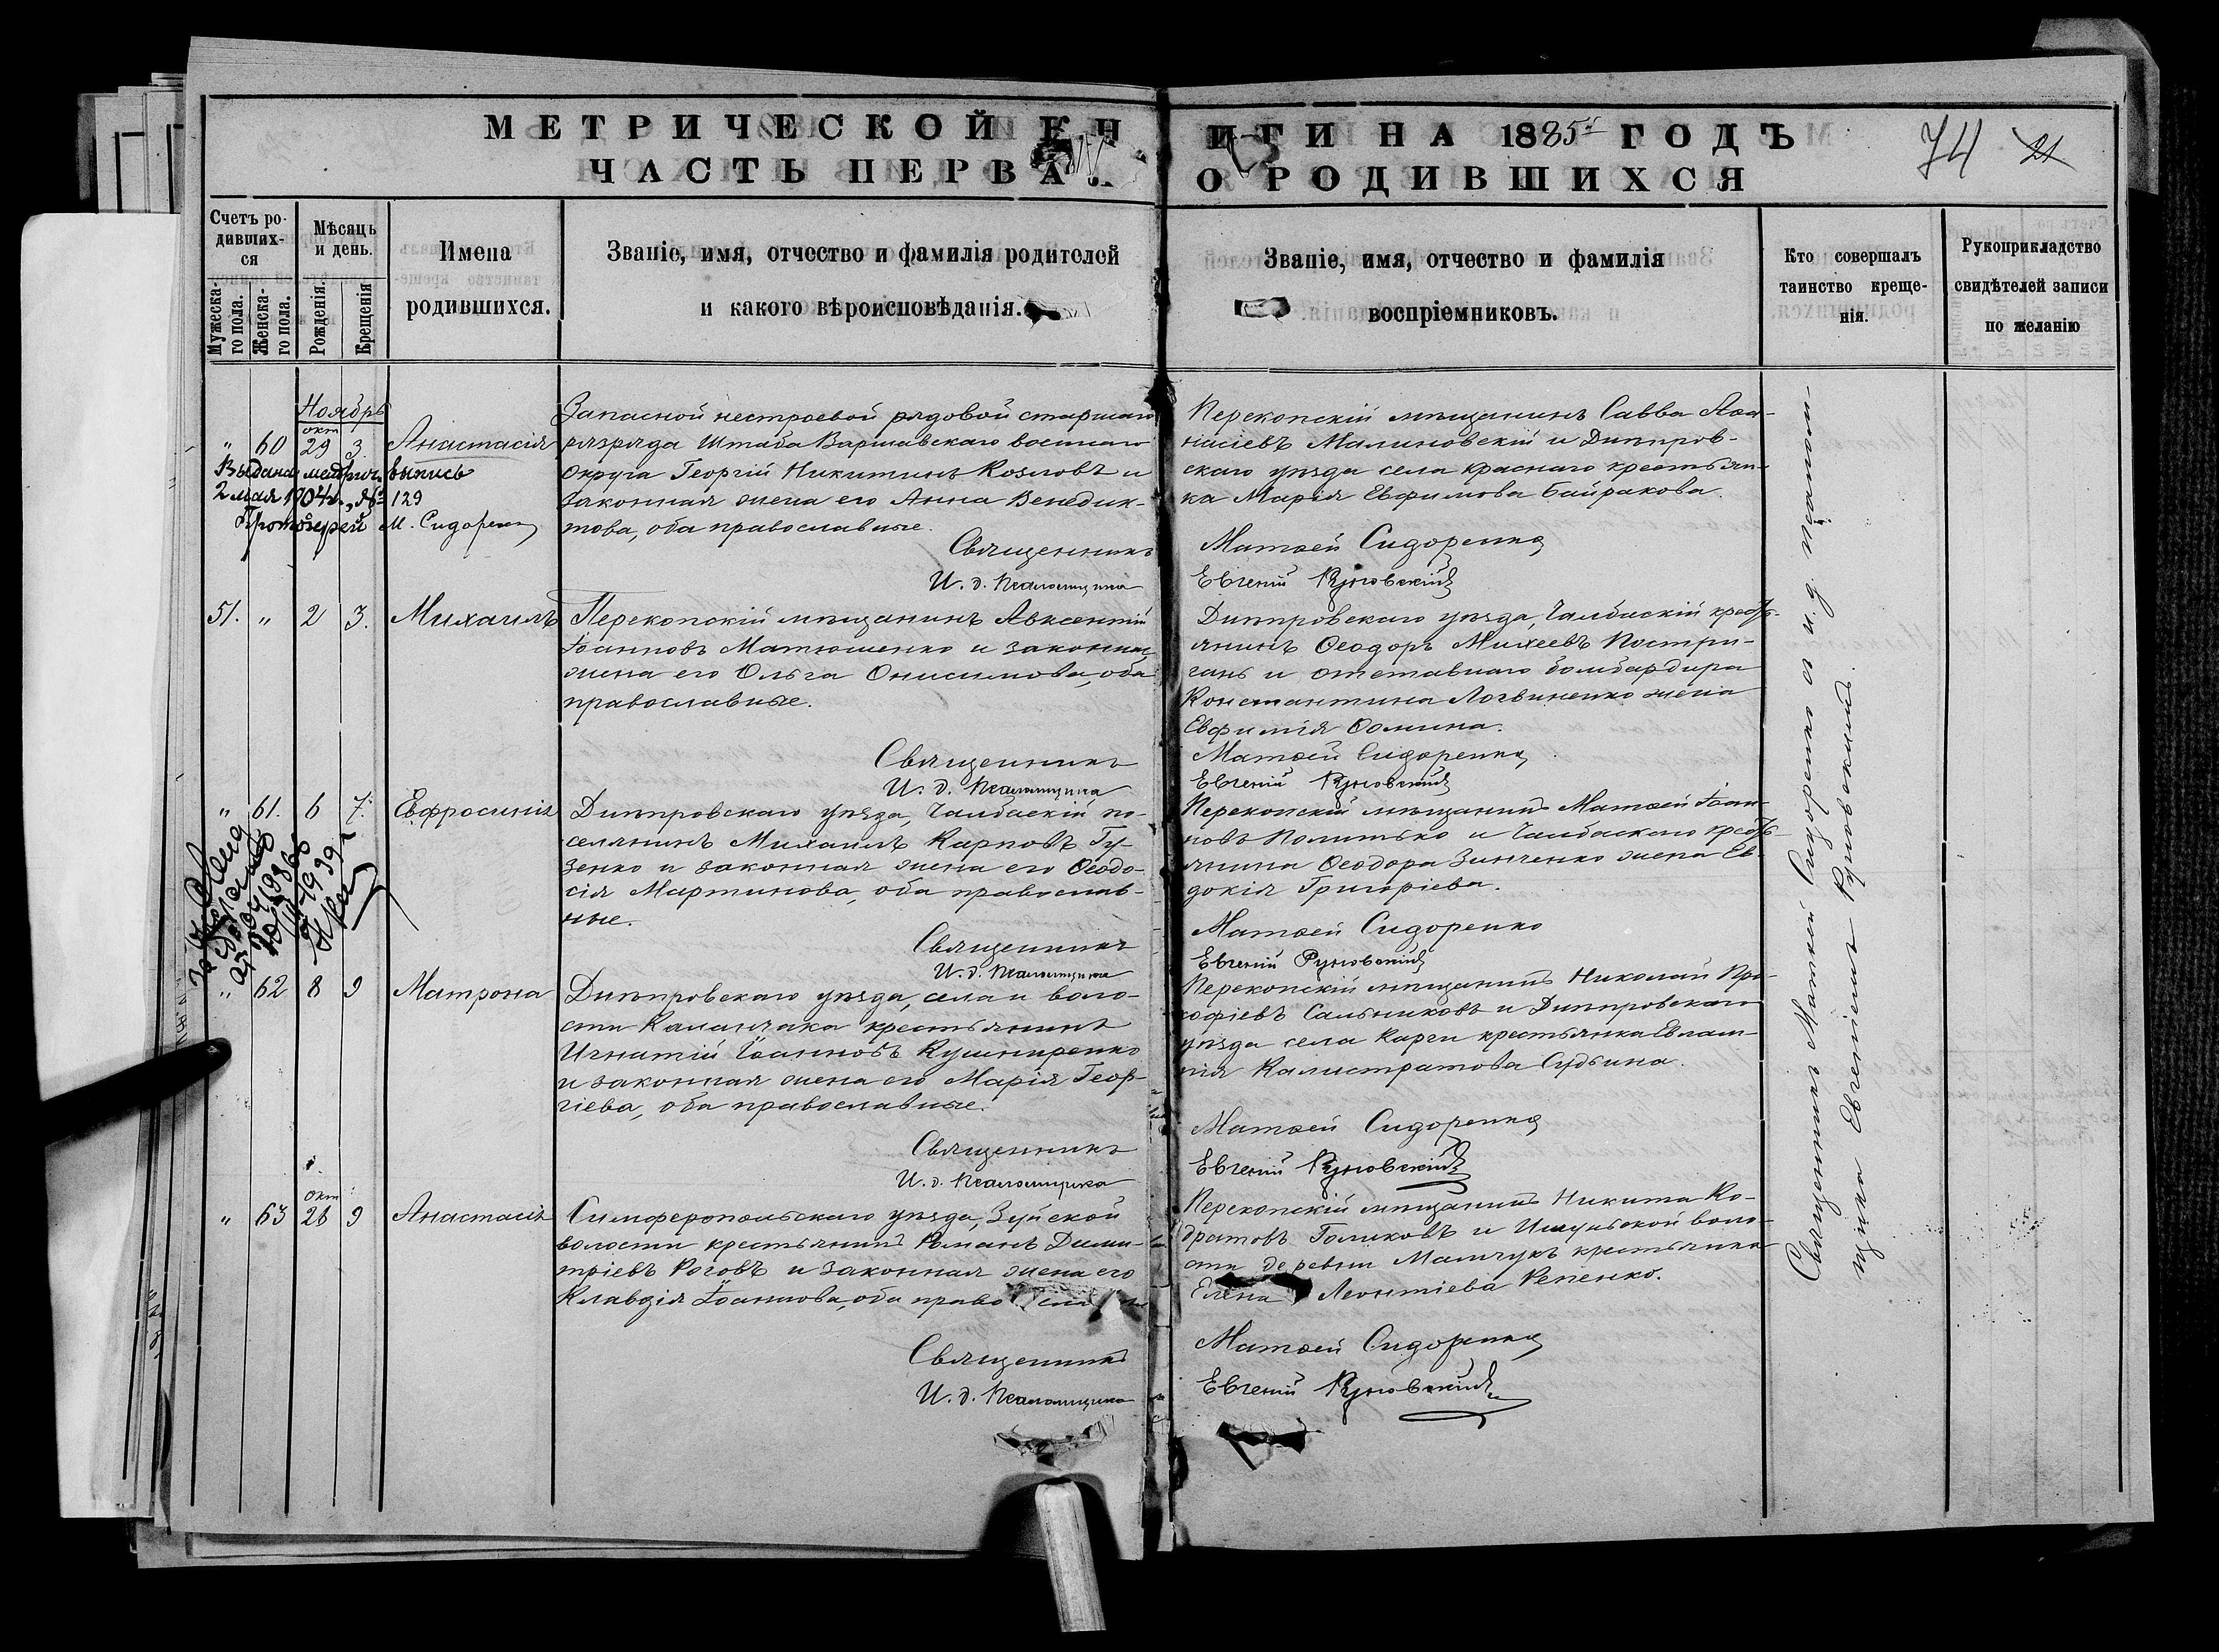 МЕТРИЧЕСКОЙ КНИГИ НА 1885й ГОДЪ
74 21
ЧАСТЬ ПЕРВАЯ. О РОДИВШИХСЯ
Счетъ ро-
дивших-
ся
Мужеска-
го пола.
Женска-
го пола.
Мѣсяцъ
и день.
Рожденія.
Крещенія
Имена
родившихся.
Званіе, имя, отчество и фамилія родителей
и какого вѣроисповѣданія.
Званіе, имя, отчество и фамилія
воспріемниковъ.
Кто совершалъ
таинство креще-
нія.
Рукоприкладство
свидѣтелей записи
по желанію
Ноябрь
окт
" 60 29 3. Анастасія
Выдана метрич. выпись
2 мая 1904 г., № 129
Протоіерей М. Сидоренко
Запасной нестроевой рядовой старшаго
разряда Штаба Варшавскаго военнаго
округа Георгій Никитинъ Козловъ и
законная жена его Анна Венедик-
това, оба православные.
Священникъ
И. д. Псаломщика
Перекопскій мѣщанинъ Савва Аѳа-
насіевъ Малиновскій и Днѣпров-
скаго уѣзда села Краснаго крестьян-
ка Марія Евфимова Байракова.
Матѳей Сидоренко
Евгеній Руновскій
51. " 2 3. Михаилъ
Перекопскій мѣщанинъ Авксентій
Іоанновъ Матюшенко и законная
жена его Ольга Онисимова, оба
православные.
Священникъ
И. д. Псаломщика
Днѣпровскаго уѣзда, Чалбаскій кресть-
янинъ Ѳеодоръ Михеевъ Постри-
гань и отставнаго бомбардира
Константина Логвиненко жена
Евфимія Ѳомина.
Матѳей Сидоренко
Евгеній Руновскій
" 61. 6 7. Евфросинія
Днѣпровскаго уѣзда, Чалбаскій по-
селянинъ Михаилъ Карповъ Гу-
зенко и законная жена его Ѳеодо-
сія Мартинова, оба православ-
ные.
Священникъ
И. д. Псаломщика
Перекопскій мѣщанинъ Матѳей Іоан-
новъ Политько и Чалбаскаго кресть-
янина Ѳеодора Зинченко жена Ев-
докія Григоріева.
Матѳей Сидоренко
Евгеній Руновскій
" 62 8 9 Матрона
Днѣпровскаго уѣзда, села и воло-
сти Каланчака крестьянинъ
Игнатій Іоанновъ Кушниренко
и законная жена его Марія Геор-
гіева, оба православные.
Священникъ
И. д. Псаломщика
Перекопскій мѣщанинъ Николай Про-
кофіевъ Сальниковъ и Днѣпровскаго
уѣзда села Карги крестьянка Евлам-
пія Калистратова Судьина.
Матѳей Сидоренко
Евгеній Руновскій
окт
" 63 26 9 Анастасія
Симферопольскаго уѣзда, Зуйской
волости крестьянинъ Романъ Дими-
тріевъ Роговъ и законная жена его
Клавдія Іоаннова, оба право
Священникъ
И. д. Псаломщика
Перекопскій мѣщанинъ Никита Ко-
дратовъ Голиковъ и Ишуньской воло-
сти деревни Мамчукъ крестьянка
Елена Леонтіева Репенко.
Матѳей Сидоренко
Евгеній Руновскій
Священникъ Матѳей Сидоренко и и. д. псалом-
щика Евгеній Руновскій.